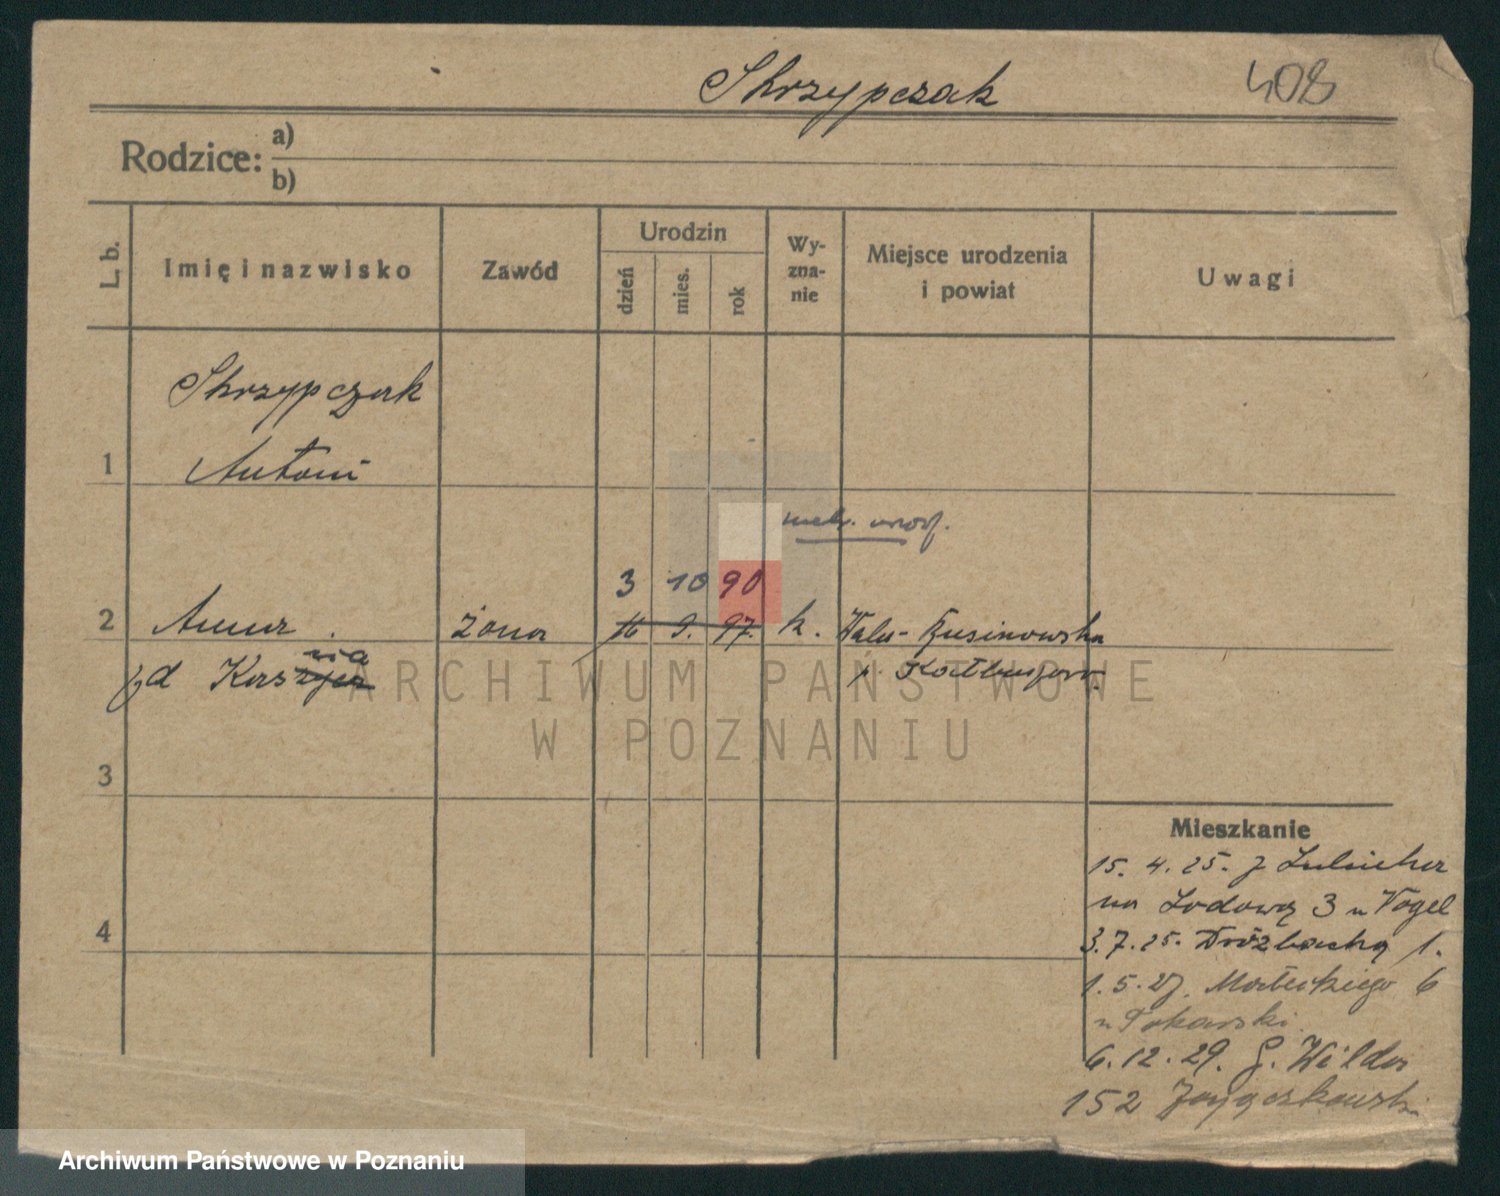 Skrzypczak 408
Rodzice: a)
b)
L. b.
Imię i nazwisko
Zawód
Urodzin
dzień
mies.
rok
Wy-
zna-
nie
Miejsce urodzenia
i powiat
Uwagi
Skrzypczak
1 Antoni
metr. urodz.
3 10 90
2 Anna żona 16 9. 97. k. Wola-Rusinowska
p. Kolbuszowa
3
4
Mieszkanie
15. 4. 25. z
na Lodową 3 u Vogel
3. 7. 25. 1.
1. 5. 27. Małeckiego 6
u Tokarski
6. 12. 29. G. Wilda
152
ARCHIWUM PAŃSTWOWE
W POZNANIU
Archiwum Państwowe w Poznaniu